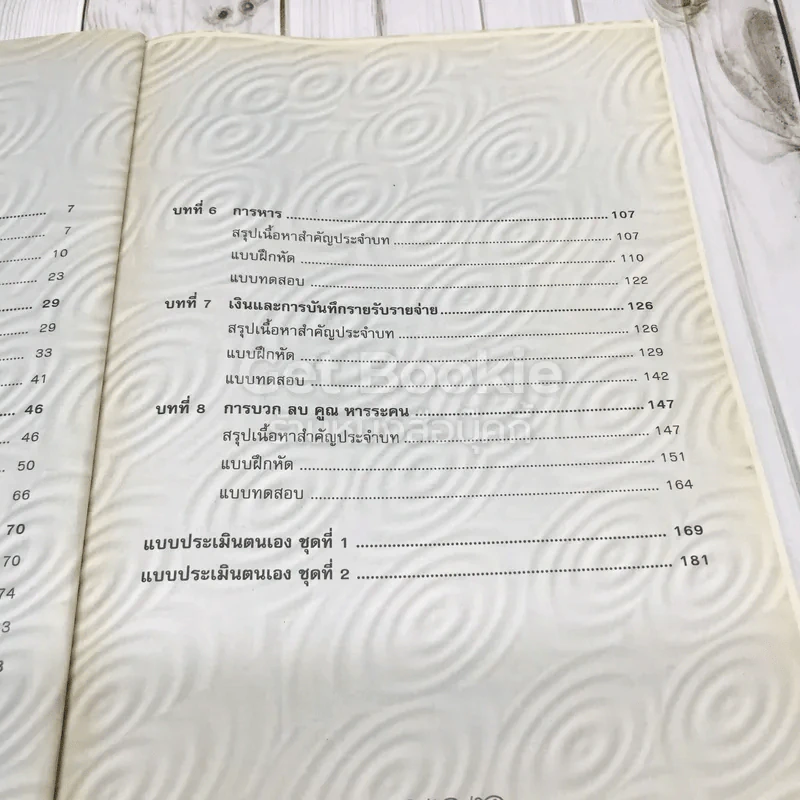 7
7
10
23
29
29
33
41
46
46
50
66
70
70
74
บทที่ 6 การหาร 107
สรุปเนื้อหาสำคัญประจำบท 107
แบบฝึกหัด 110
แบบทดสอบ 122
บทที่ 7 เงินและการบันทึกรายรับรายจ่าย 126
สรุปเนื้อหาสำคัญประจำบท 126
แบบฝึกหัด 129
แบบทดสอบ 142
บทที่ 8 การบวก ลบ คูณ หารระคน 147
สรุปเนื้อหาสำคัญประจำบท 147
แบบฝึกหัด 151
แบบทดสอบ 164
แบบประเมินตนเอง ชุดที่ 1 169
แบบประเมินตนเอง ชุดที่ 2 181
Get Bookie